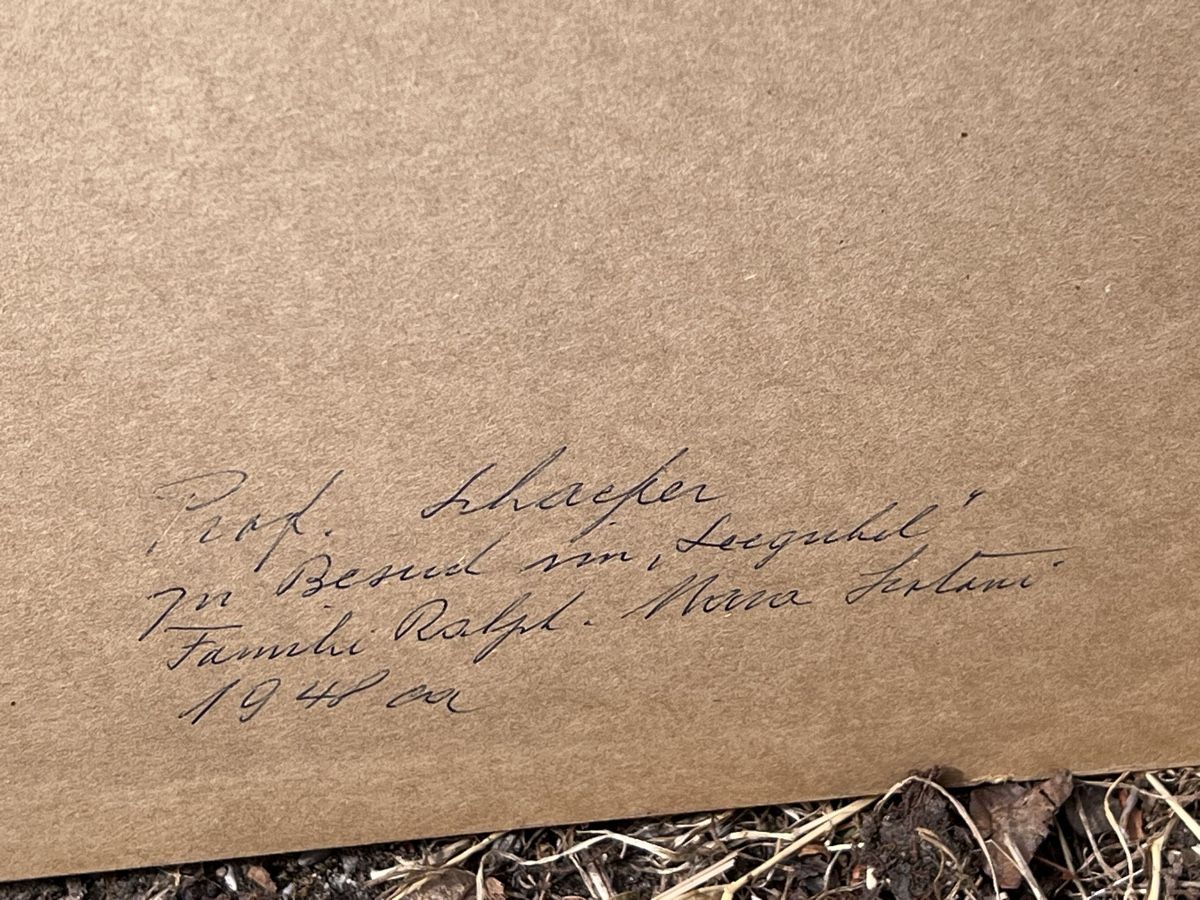 Prof. Schaefer
In Besuch im „Seegubel"
Familie Ralph. Mara Scotoni
1948 ca